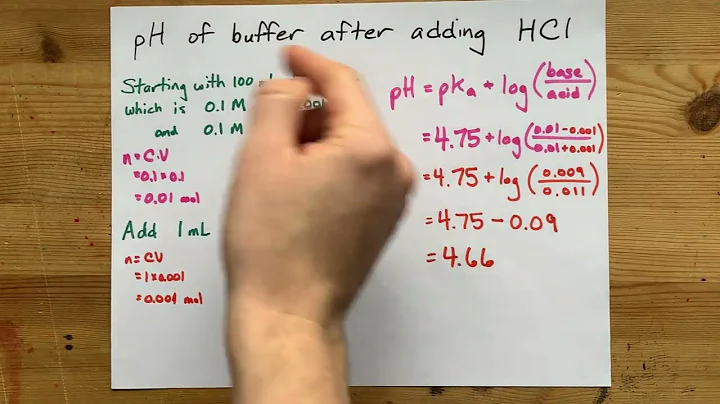 pH of buffer after adding HCl
Starting with 100
which is 0.1 M
and 0.1 M
n = C·V
= 0.1 × 0.1
= 0.01 mol
Add 1 mL
n = CV
= 1 × 0.001
= 0.001 mol
pH = pKa + log (base/acid)
= 4.75 + log (0.01 - 0.001/0.01 + 0.001)
= 4.75 + log (0.009/0.011)
= 4.75 - 0.09
= 4.66